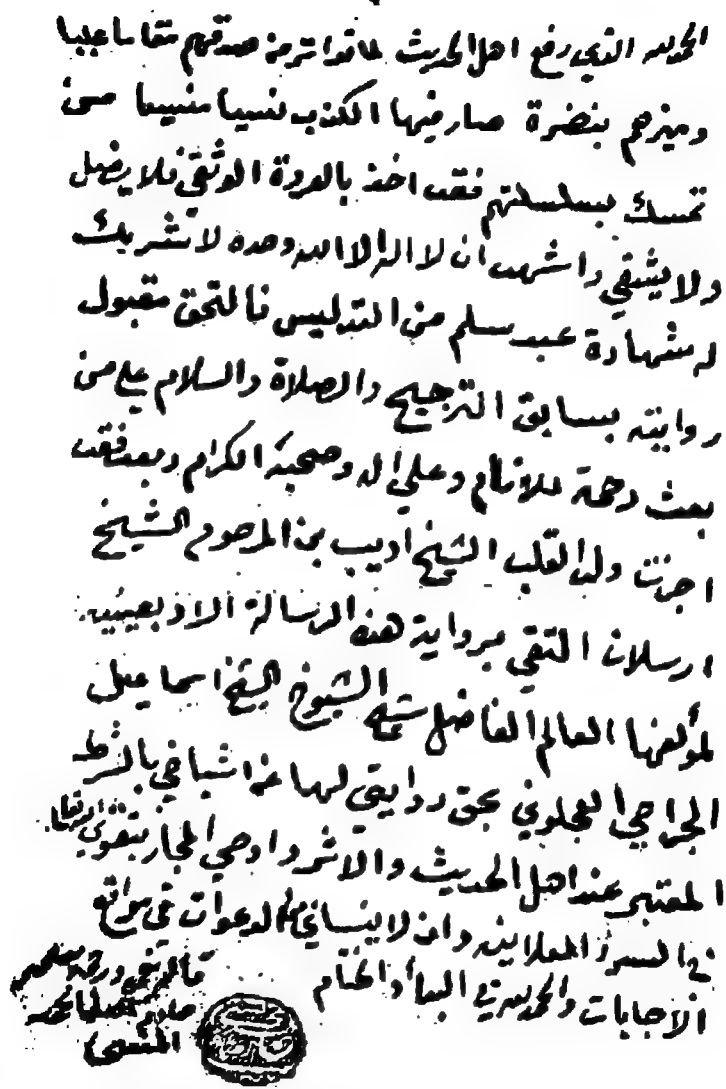 الحمد لله الذي رفع اهل الحديث لما تواتر من صدقهم مقاما عليا
وميزهم بنضرة صار فيها الكذب نسيا منسيا من
تمسك بسلسلتهم فقد اخذ بالعروة الوثقى فلا يضل
ولا يشقى واشهد ان لا اله الا الله وحده لا شريك
له شهادة عبد سلم من التدليس فالتحق مقبول
روايته بسابق الترجيح والصلاة والسلام على من
بعث رحمة للانام وعلى اله وصحبه الكرام وبعد فقد
اجزت ولد القلب الشيخ اديب بن المرحوم الشيخ
ارسلان التقي برواية هذه الرسالة الاربعينيه
لمؤلفها العالم الفاضل شيخ الشيوخ الشيخ اسماعيل
الجراحي العجلوني بحق روايتي لها عن اشياخي بالشرط
المعتبر عند اهل الحديث والاثر واوصي المجاز بتقوى الله تعالى
في السر والعلانيه وان لا ينساني من الدعوات في مواقع
الاجابات والحمد لله في البدأ والختام
قاله بفمه ورقمه بقلمه
خادم